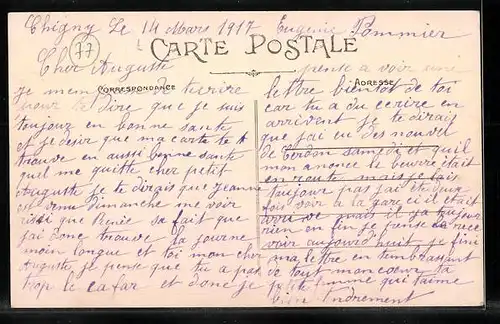 Chigny Le 14 Mars 1917 Eugenie Pommier
77
CARTE POSTALE
CORRESPONDANCE
ADRESSE
Cher Auguste
je mem décrire
pour te dire que je suis
toujour en bonne sante
et je desir que ma carte te
trouve en aussi bonne sante
quel me quitte cher petit
Auguste je te dirais que jeanne
venu dimanche me voir
que Renée sa fait que
jai donc trouve la journe
moin longue et toi mon cher
Auguste je pense que tu a pas
trop le cafar et donc je
pense a voir une
lettre bientot de toi
car tu a du ecrire en
arrivent je te dirait
que jai eu des nouvel
de samedi et quil
mon anonce le beurre etait
en route mais je
toujour pas jai ete deux
fois voir a la gare ci il etait
mais il toujour
rien en fin je pense la rece
voir aujourd huit je fini
ma lettre en tembrassant
de tout mon coeur ta
petite femme qui taime
bien tendrement